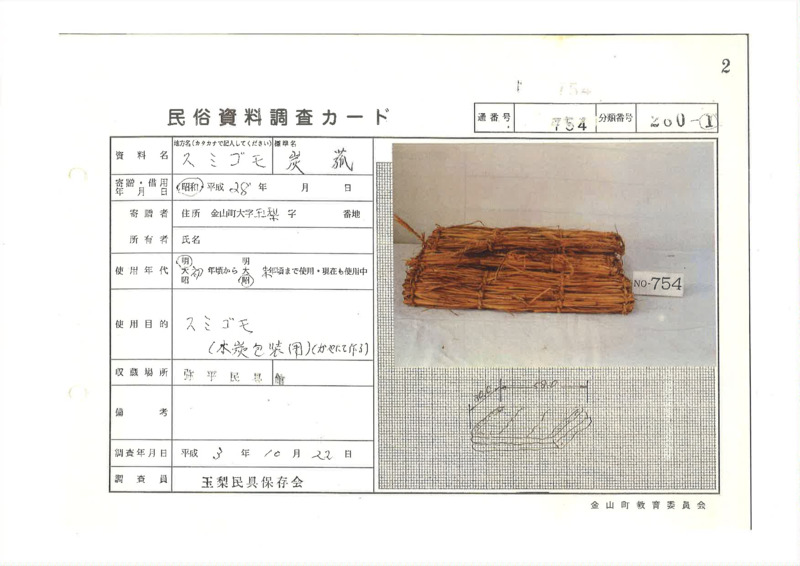 2
民俗資料調査カード
通番号 754 分類番号 200-①
資料名 地方名(カタカナで記入してください) スミゴモ 標準名 炭菰
寄贈・借用年月日 昭和 平成 28年 月 日
寄贈者 住所 金山町大字玉梨字 番地
所有者 氏名
使用年代 明大昭 初 年頃から 明大昭 末 年頃まで使用・現在も使用中
使用目的 スミゴモ
(木炭包装用)(かやにて作る)
収蔵場所 弥平民具館
備考
調査年月日 平成 3年 10月 22日
調査員 玉梨民具保存会
NO-754
59.0
金山町教育委員会